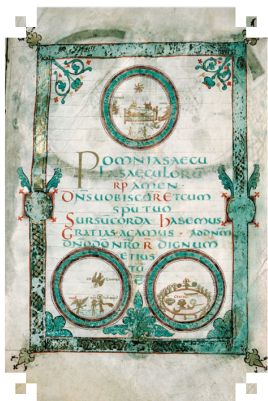 POMNIASAECU
LASAECULORU
RP AMEN·
DNSUOBISCU R ETCUM
SPU TUO
SURSUCORDA· HABEMUS
GRATIAS AGAMUS· ADDNM
DNODONRO R DIGNUM
ETIUS
TU